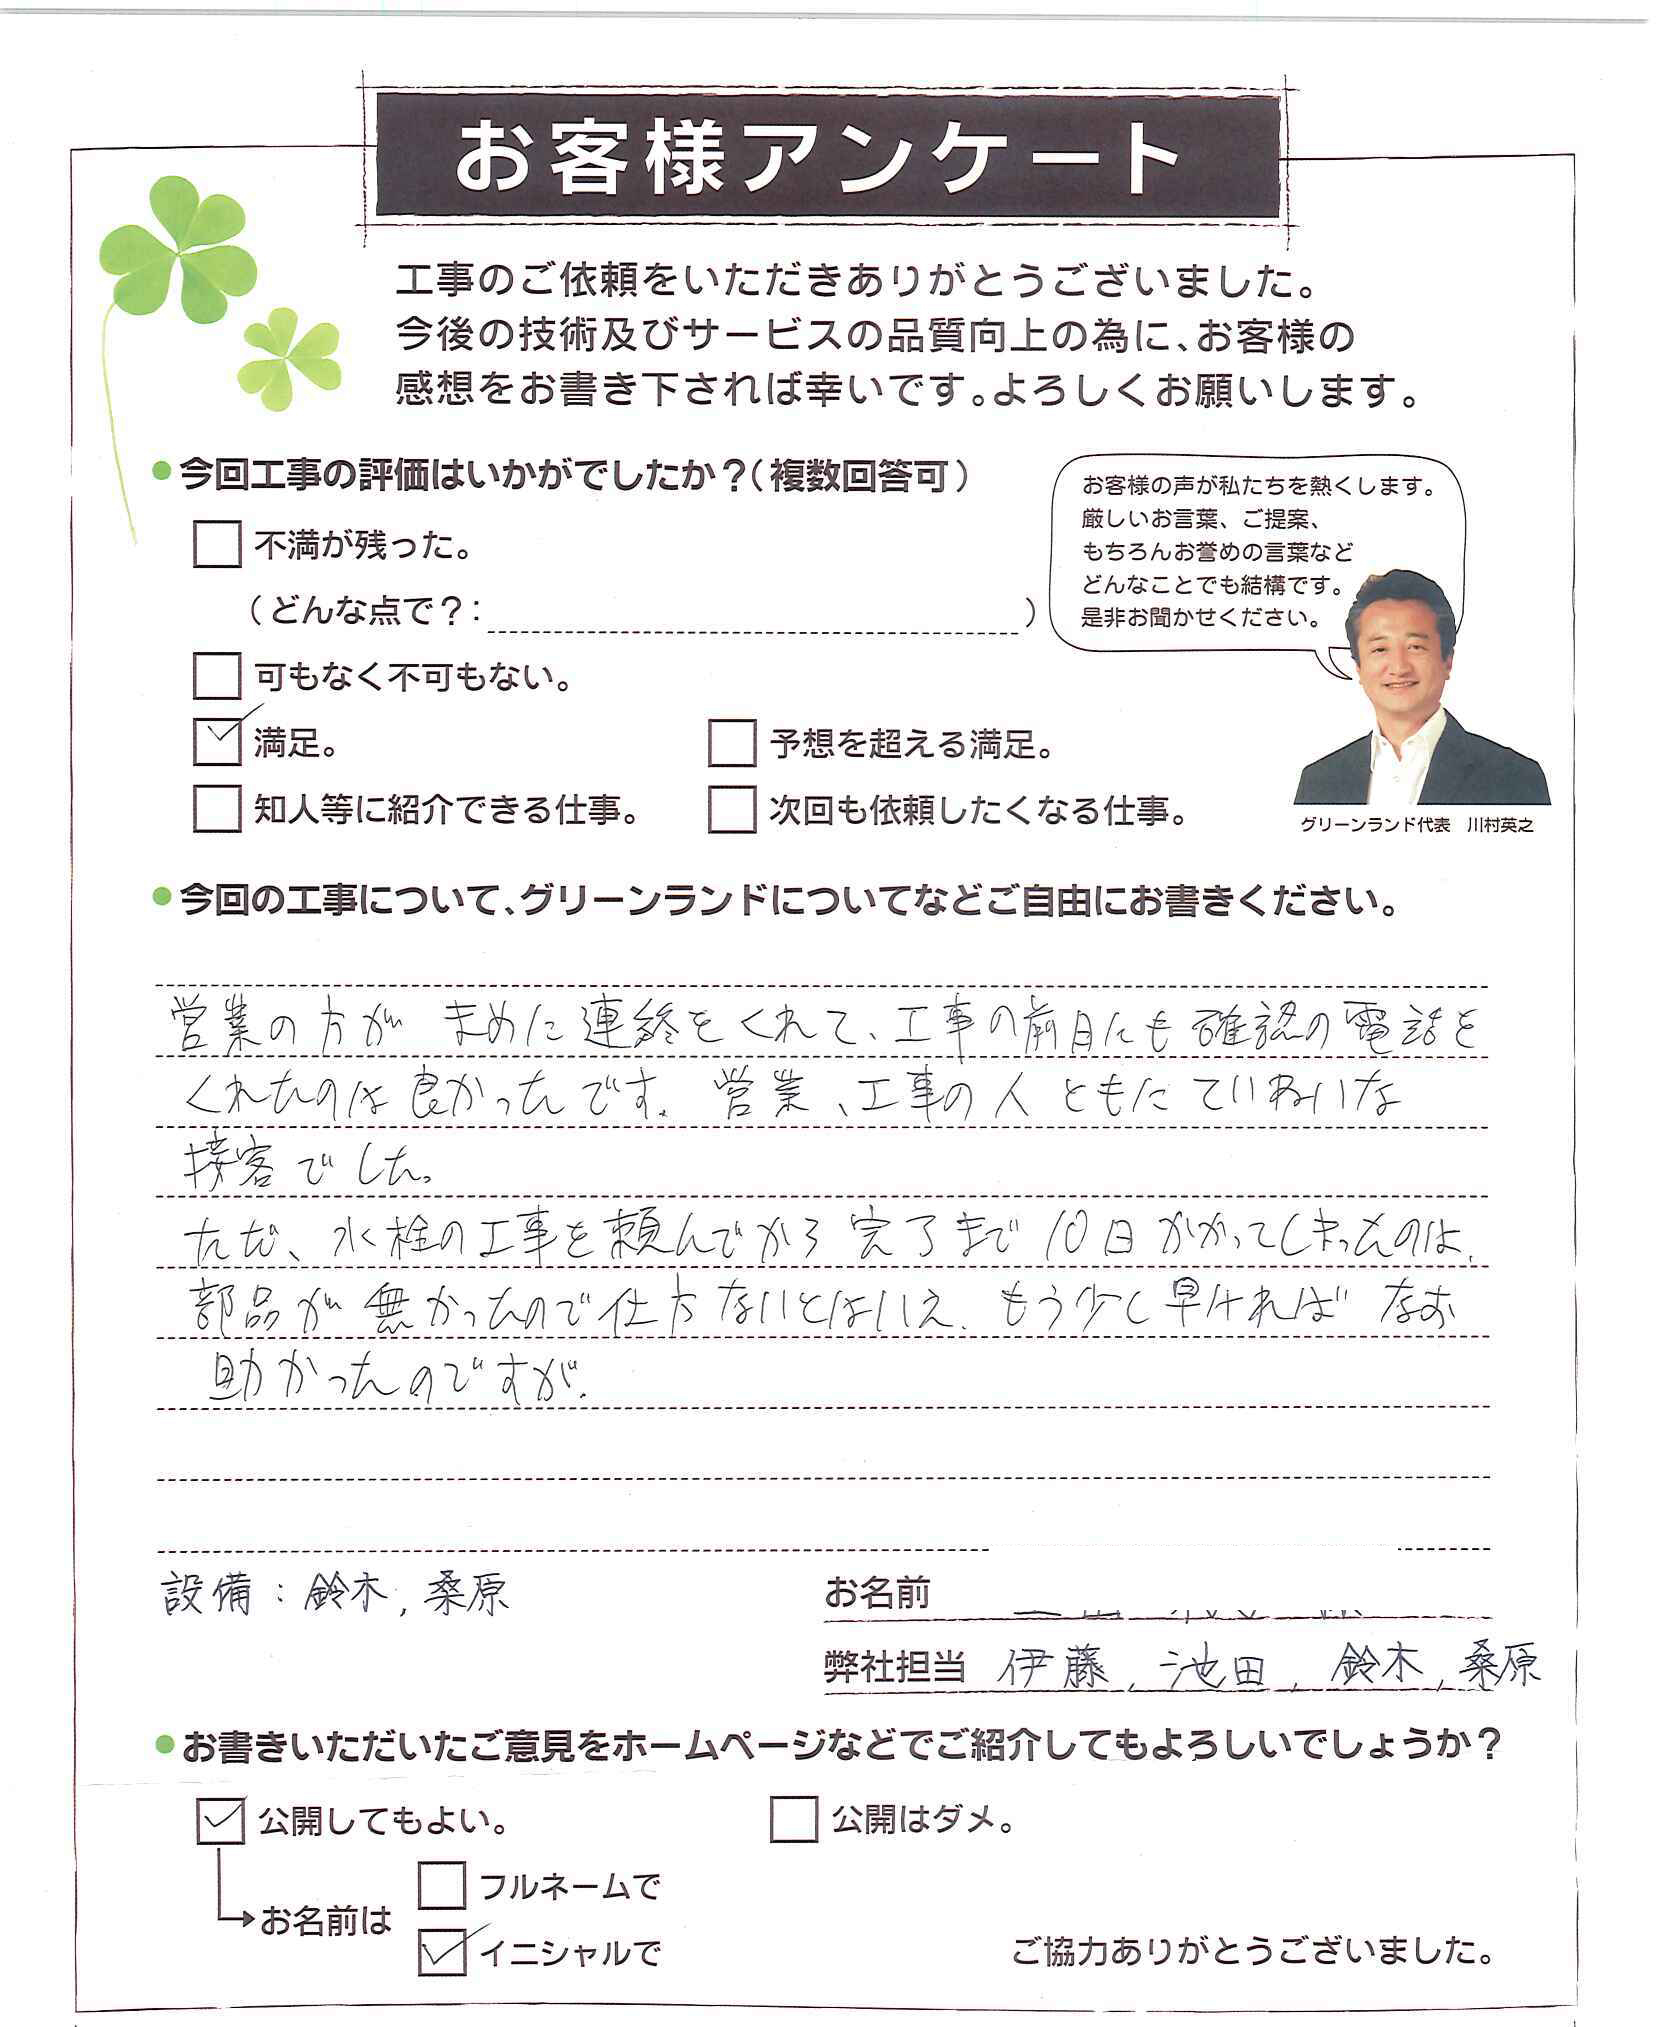 お客様アンケート
工事のご依頼をいただきありがとうございました。
今後の技術及びサービスの品質向上の為に、お客様の
感想をお書き下されば幸いです。よろしくお願いします。
●今回工事の評価はいかがでしたか？（複数回答可）
不満が残った。
（どんな点で？：　）
可もなく不可もない。
満足。
予想を超える満足。
知人等に紹介できる仕事。
次回も依頼したくなる仕事。
お客様の声が私たちを熱くします。
厳しいお言葉、ご提案、
もちろんお誉めの言葉など
どんなことでも結構です。
是非お聞かせください。
グリーンランド代表　川村英之
●今回の工事について、グリーンランドについてなどご自由にお書きください。
営業の方が まめに連絡をくれて、工事の前日にも確認の電話を
くれたのは良かったです。営業、工事の人ともにていねいな
接客でした。
ただ、水栓の工事を頼んでから完了まで10日かかってしまったのは、
部品が無かったので仕方ないとはいえ、もう少し早ければ なお
助かったのですが。
設備：鈴木, 桑原
お名前
弊社担当 伊藤, 池田, 鈴木, 桑原
●お書きいただいたご意見をホームページなどでご紹介してもよろしいでしょうか？
公開してもよい。
公開はダメ。
お名前は
フルネームで
イニシャルで
ご協力ありがとうございました。